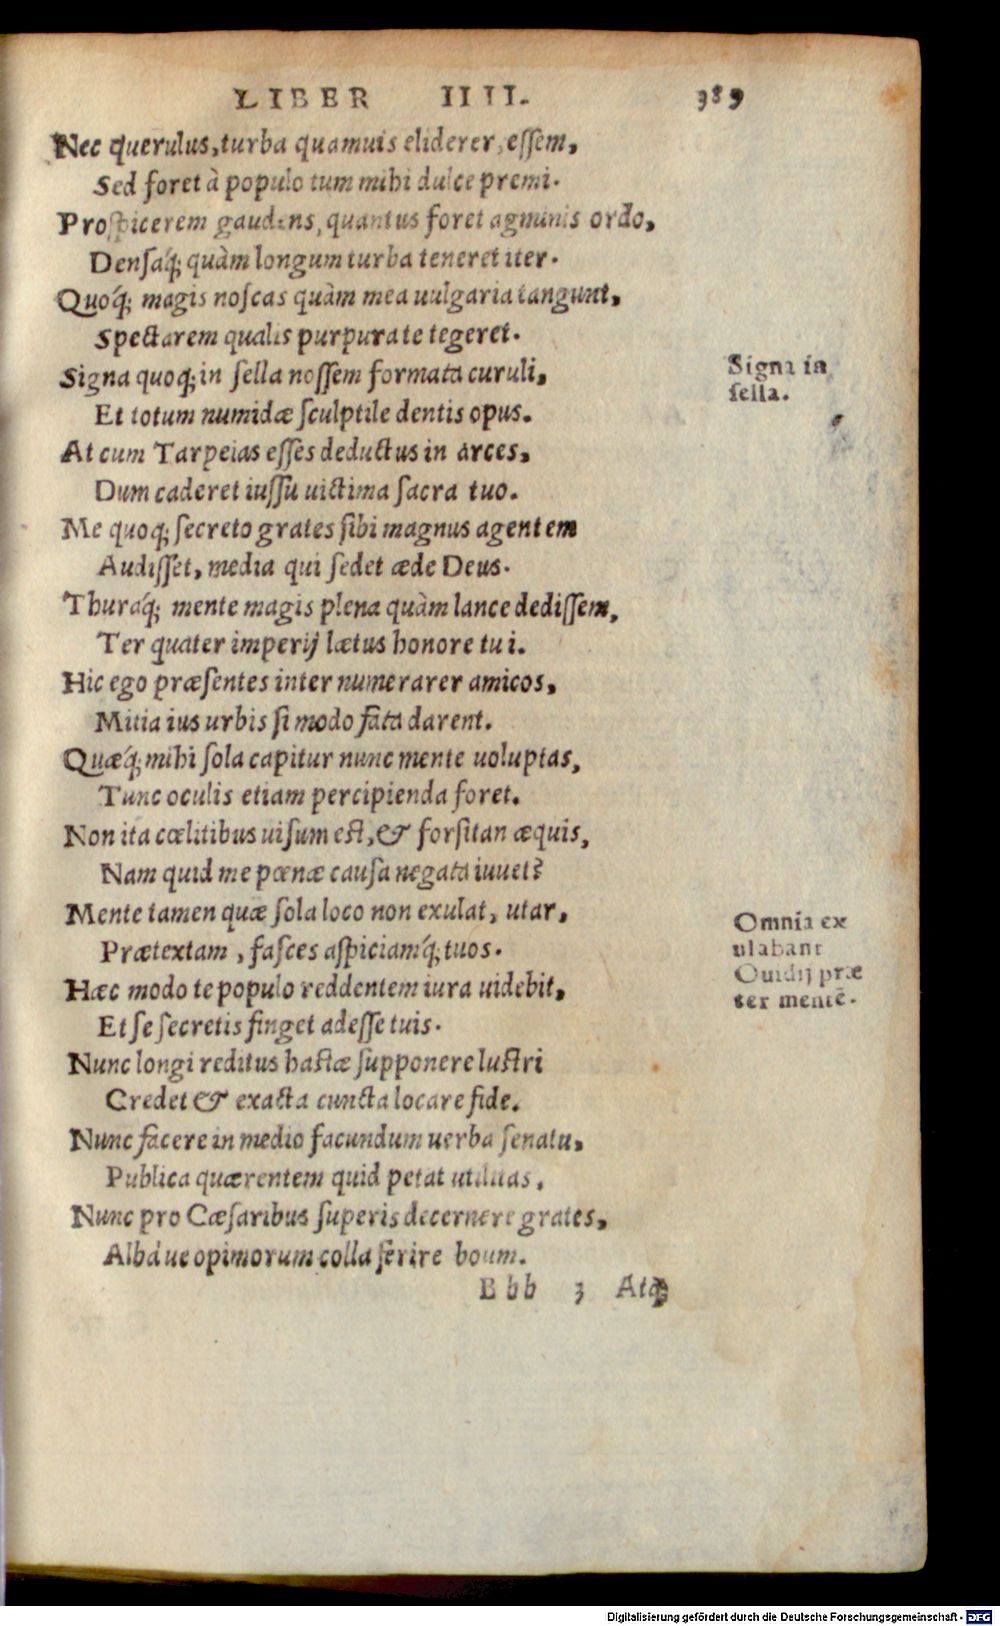 LIBER IIII. 389
Nec querulus, turba quamuis eliderer, essem,
Sed foret à populo tum mihi dulce premi.
Prospicerem gaudens, quantus foret agminis ordo,
Densaq́; quàm longum turba teneret iter.
Quoq́; magis noscas quàm mea uulgaria tangunt,
Spectarem qualis purpura te tegeret.
Signa quoq; in sella nossem formata curuli,
Et totum numidæ sculptile dentis opus.
At cum Tarpeias esses deductus in arces,
Dum caderet iussu uictima sacra tuo.
Me quoq; secreto grates sibi magnus agentem
Audisset, media qui sedet æde Deus.
Thuraq́; mente magis plena quàm lance dedissem,
Ter quater imperij lætus honore tui.
Hic ego præsentes inter numerarer amicos,
Mitia ius urbis si modo fata darent.
Quæq́; mihi sola capitur nunc mente uoluptas,
Tunc oculis etiam percipienda foret.
Non ita cœlitibus uisum est, & forsitan æquis,
Nam quid me pœnæ causa negata iuuet?
Mente tamen quæ sola loco non exulat, utar,
Prætextam, fasces aspiciamq́; tuos.
Hæc modo te populo reddentem iura uidebit,
Et se secretis finget adesse tuis.
Nunc longi reditus hastæ supponere lustri
Credet & exacta cuncta locare fide.
Nunc facere in medio facundum uerba senatu,
Publica quærentem quid petat utilitas.
Nunc pro Cæsaribus superis decernere grates,
Albáue opimorum colla ferire boum.
Bbb 3 Atq;
Signa in
sella.
Omnia ex
ulabant
Ouidij præ
ter mentē.
Digitalisierung gefördert durch die Deutsche Forschungsgemeinschaft - DFG